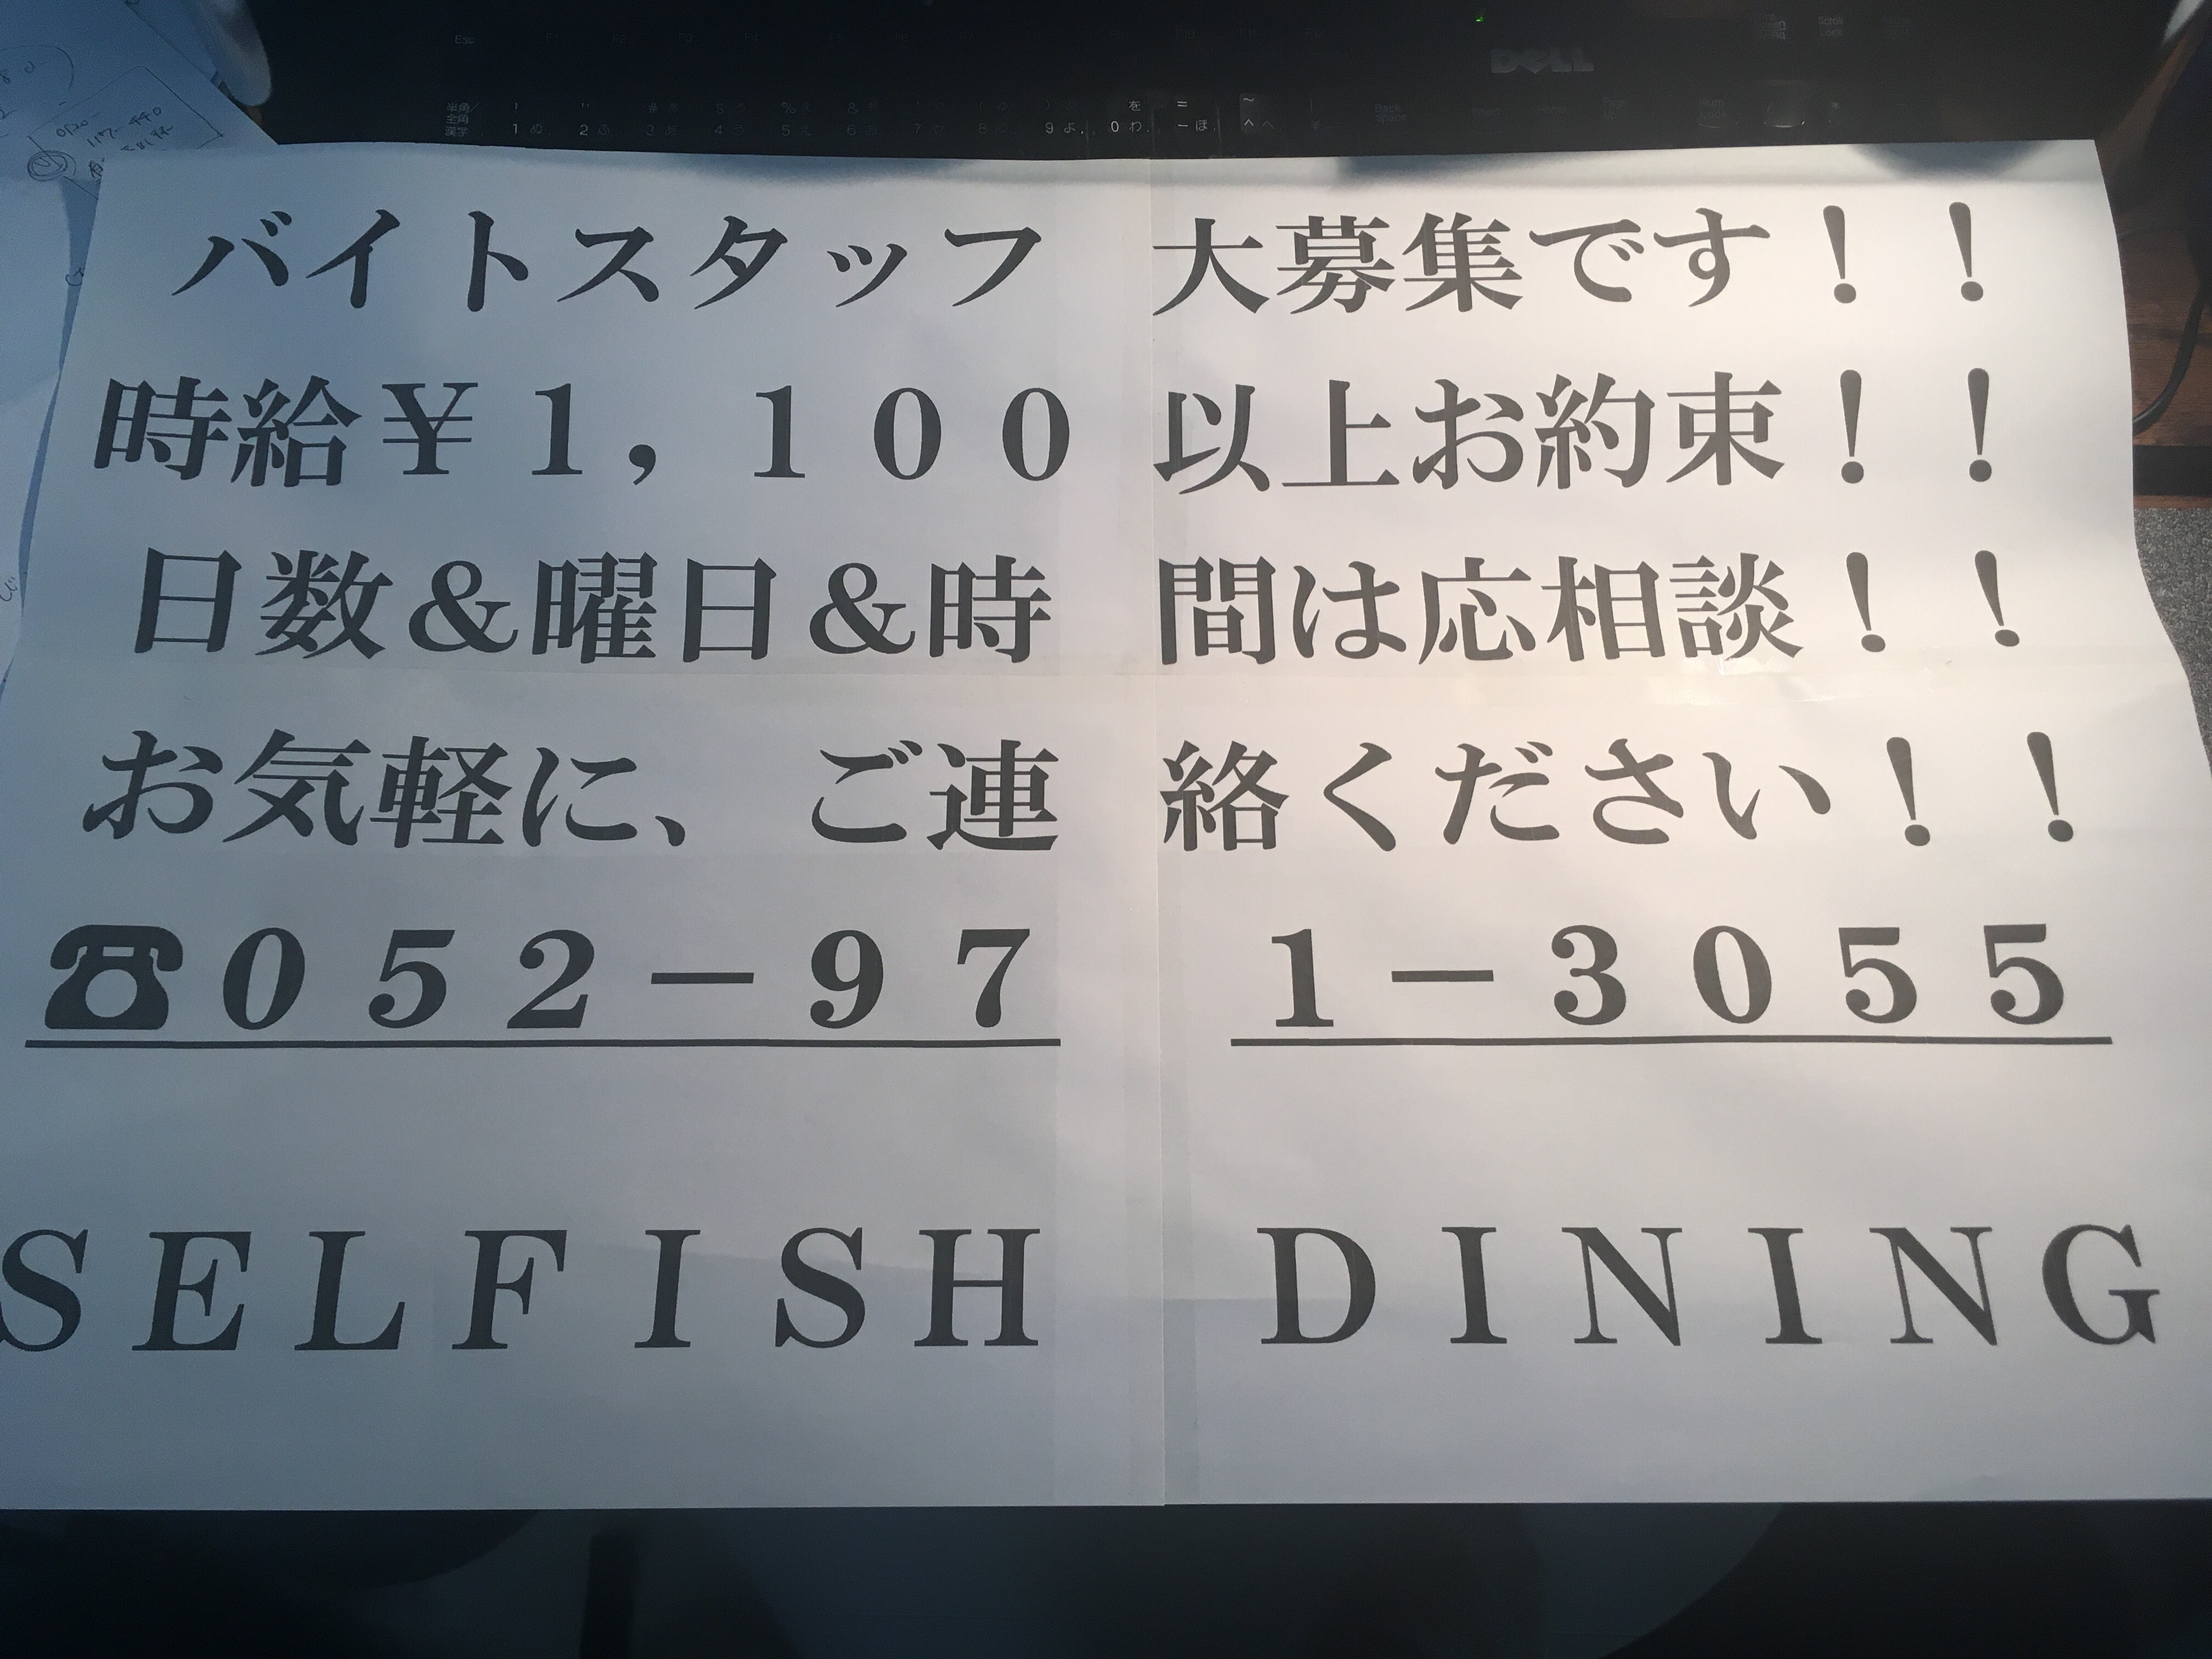 DELL
Esc
バイトスタッフ大募集です！！
時給￥１，１００以上お約束！！
日数＆曜日＆時間は応相談！！
お気軽に、ご連絡ください！！
☎０５２－９７１－３０５５
ＳＥＬＦＩＳＨ　ＤＩＮＩＮＧ